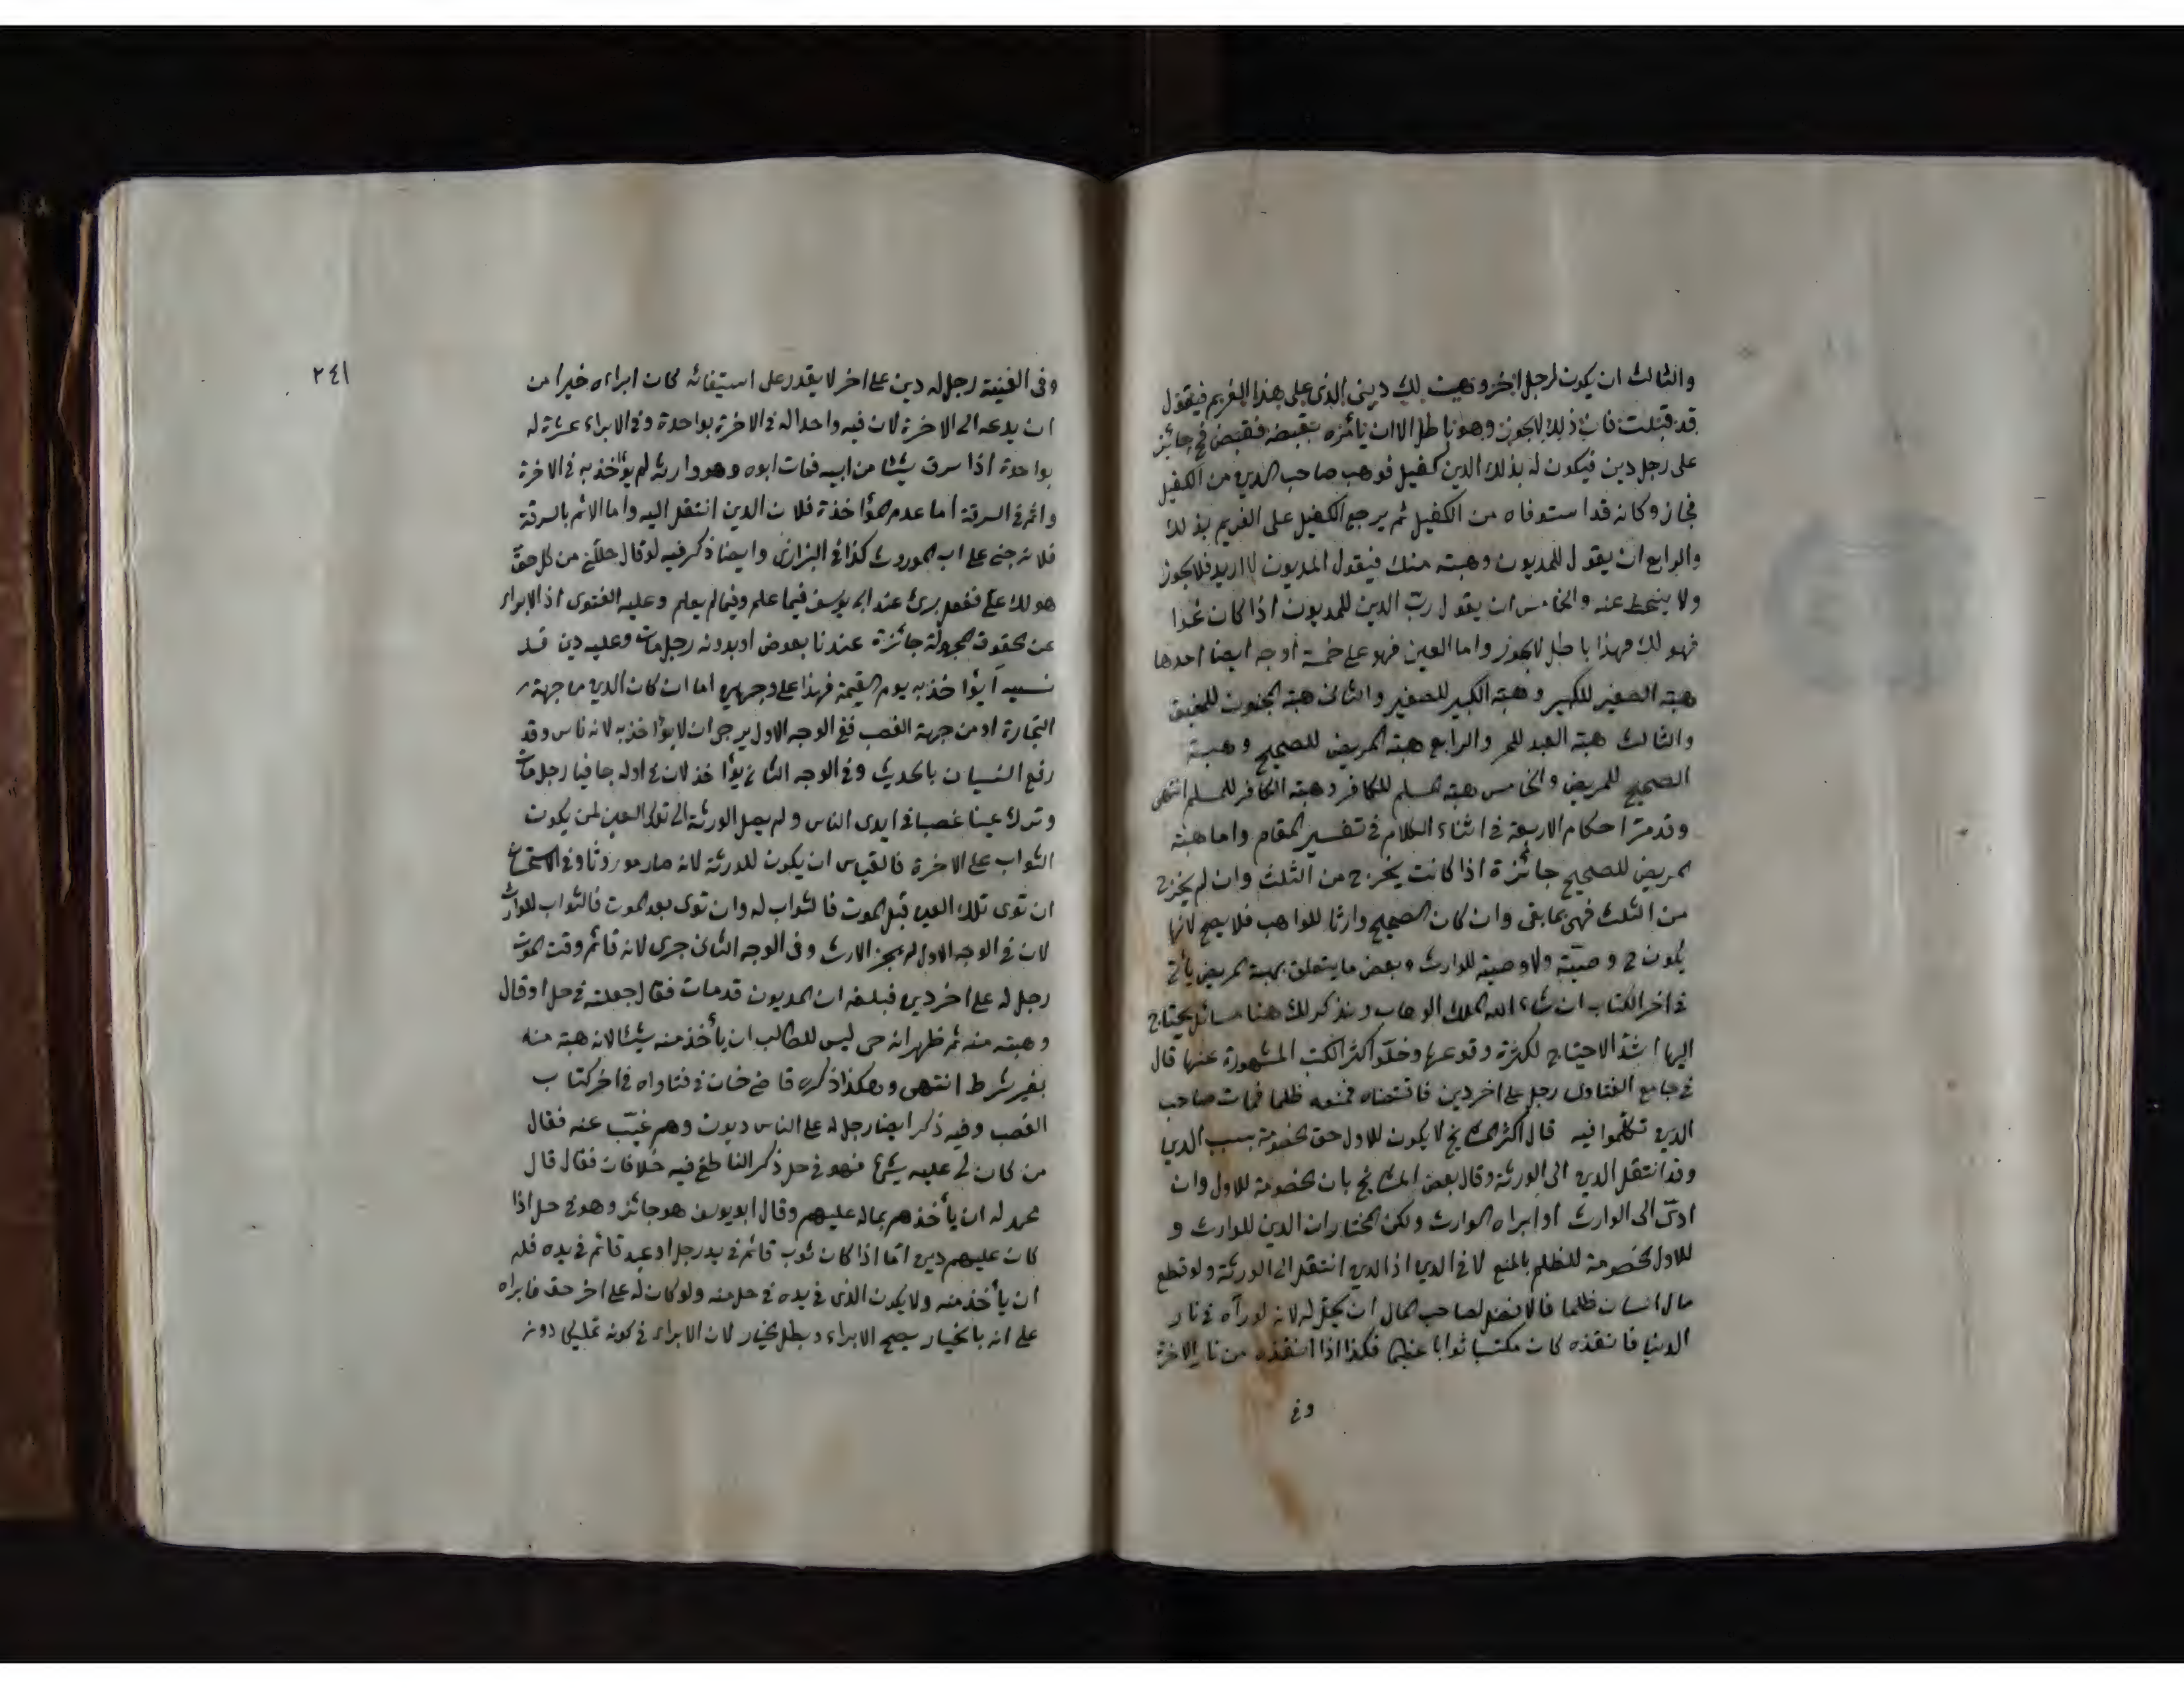 والثالث ان يكون لرجل اخر وهبت لك ديني الذى على هذا الغريم فيقول
قد قبلت فان ذلك لايجوز وهو باطل الا ان يأمره بقبضه فقبض فح جائز
على رجل دين فيكون له بذلك الدين كفيل فوهب صاحب الدين من الكفيل
فجاز وكانه قد استوفاه من الكفيل ثم يرجع الكفيل على الغريم بذلك
والرابع ان يقول للمديون وهبته منك فيقول المديون لا اريد فلايجوز
ولا ينحط عنه والخامس ان يقول ربّ الدين للمديون اذا كان غدا
فهو لك فهذا باطل لايجوز واما العين فهو على خمسة أوجه ايضا احدها
هبة الصغير للكبير وهبة الكبير للصغير والثانى هبة المجنون للمفيق
والثالث هبة العبد للحر والرابع هبة المريض للصحيح وهبة
الصحيح للمريض والخامس هبة المسلم للكافر وهبة الكافر للمسلم انتهى
وقد مرّ احكام الاربعة فى اثناء الكلام فى تفسير المقام واما هبة
المريض للصحيح جائزة اذا كانت يخرج من الثلث وان لم يخرج
من الثلث فهى بما بقى وان كان الصحيح وارثا للواهب فلا يصح لانها
يكون ح وصيّة ولا وصية للوارث وبعض ما يتعلق بهبة المريض يأتى
فى اخر الكتاب ان شاء الله الملك الوهاب ونذكر لك هنا مسائل يحتاج
اليها اشدّ الاحتياج لكثرة وقوعها وخلوّ اكثر الكتب المشهورة عنها قال
فى جامع الفتاوى رجل على اخر دين فاقتضاه فمنعه ظلما فمات صاحب
الدين تكلّموا فيه قال اكثر المشايخ لا يكون للاول حق الخصومة بسبب الدين
وقد انتقل الدين الى الورثة وقال بعض المشايخ بان الخصومة للاول وان
ادىّ الى الوارث او ابراه الوارث ولكن المختار ان الدين للوارث و
للاول الخصومة للظلم بالمنع لا فى الدين اذ الدين انتقل الى الورثة ولو قطع
مال انسان ظلما فالافضل لصاحب المال ان يحلّ له لانه لو رآه فى نار
الدنيا فانقذه كان مكتسبا ثوابا عظيما فكذا اذا انقذه من نار الاخرة
وفى
٢٤١
وفى القنية رجل له دين على اخر لا يقدر على استيفائه كان ابراءه خيرا من
ان يدعه الى الاخرة لان فيه واحدا له فى الاخرة بواحدة وفى الابراء عشرة له
بواحدة اذا سرق شيئا من ابيه فمات ابوه وهو وارثه لم يؤاخذ به فى الاخرة
واثم فى السرقة اما عدم المؤاخذة فلان الدين انتقل اليه واما الاثم بالسرقة
فلانه جنى على اب الموروث كذا فى البزازى وايضا ذكر فيه لو قال حللنى من كل حق
هو لك علىّ ففعل برئ عند ابى يوسف فيما علم وفيما لم يعلم وعليه الفتوى اذ الابراء
عن الحقوق المجهولة جائزة عندنا بعوض او بدونه رجل مات وعليه دين قد
نسيه أيؤاخذ به يوم القيمة فهذا على وجهين اما ان كان الدين من جهة
التجارة او من جهة الغصب ففى الوجه الاول يرجى ان لايؤاخذ به لانه ناس وقد
رفع النسيان بالحديث وفى الوجه الثانى يؤاخذ لان فى اوله جافيا رجل مات
وترك عينا غصبا فى ايدى الناس ولم يصل الورثة الى تلك العين لمن يكون
الثواب على الاخرة فالقياس ان يكون للورثة لانه صار موروثا وفى الاستحسان
ان توى تلك العين قبل الموت فالثواب له وان توى بعد الموت فالثواب للوارث
لان فى الوجه الاول لم يجز الارث وفى الوجه الثانى جرى لانه قائم وقت الموت
رجل له على اخر دين فبلغه ان المديون قد مات فقال جعلته فى حل او قال
وهبته منه ثم ظهر انه حى ليس للطالب ان يأخذ منه شيئا لانه هبة منه
بغير شرط انتهى وهكذا ذكره قاضى خان فى فتاواه فى اخر كتاب
الغصب وفيه ذكر ايضا رجل له على الناس ديون وهم غيّب عنه فقال
من كان لى عليه شئ فهو فى حل ذكر الناطفى فيه خلافات فقال قال
محمد له ان يأخذهم بماله عليهم وقال ابو يوسف هو جائز وهو فى حل اذا
كان عليهم دين امّا اذا كان ثوب قائم فى يد رجل او عبد قائم فى يده فله
ان يأخذ منه ولا يكون الذى فى يده فى حل منه ولو كان له على اخر حق فابراه
على انه بالخيار يصح الابراء ويبطل الخيار لان الابراء فى كونه تمليكى دون